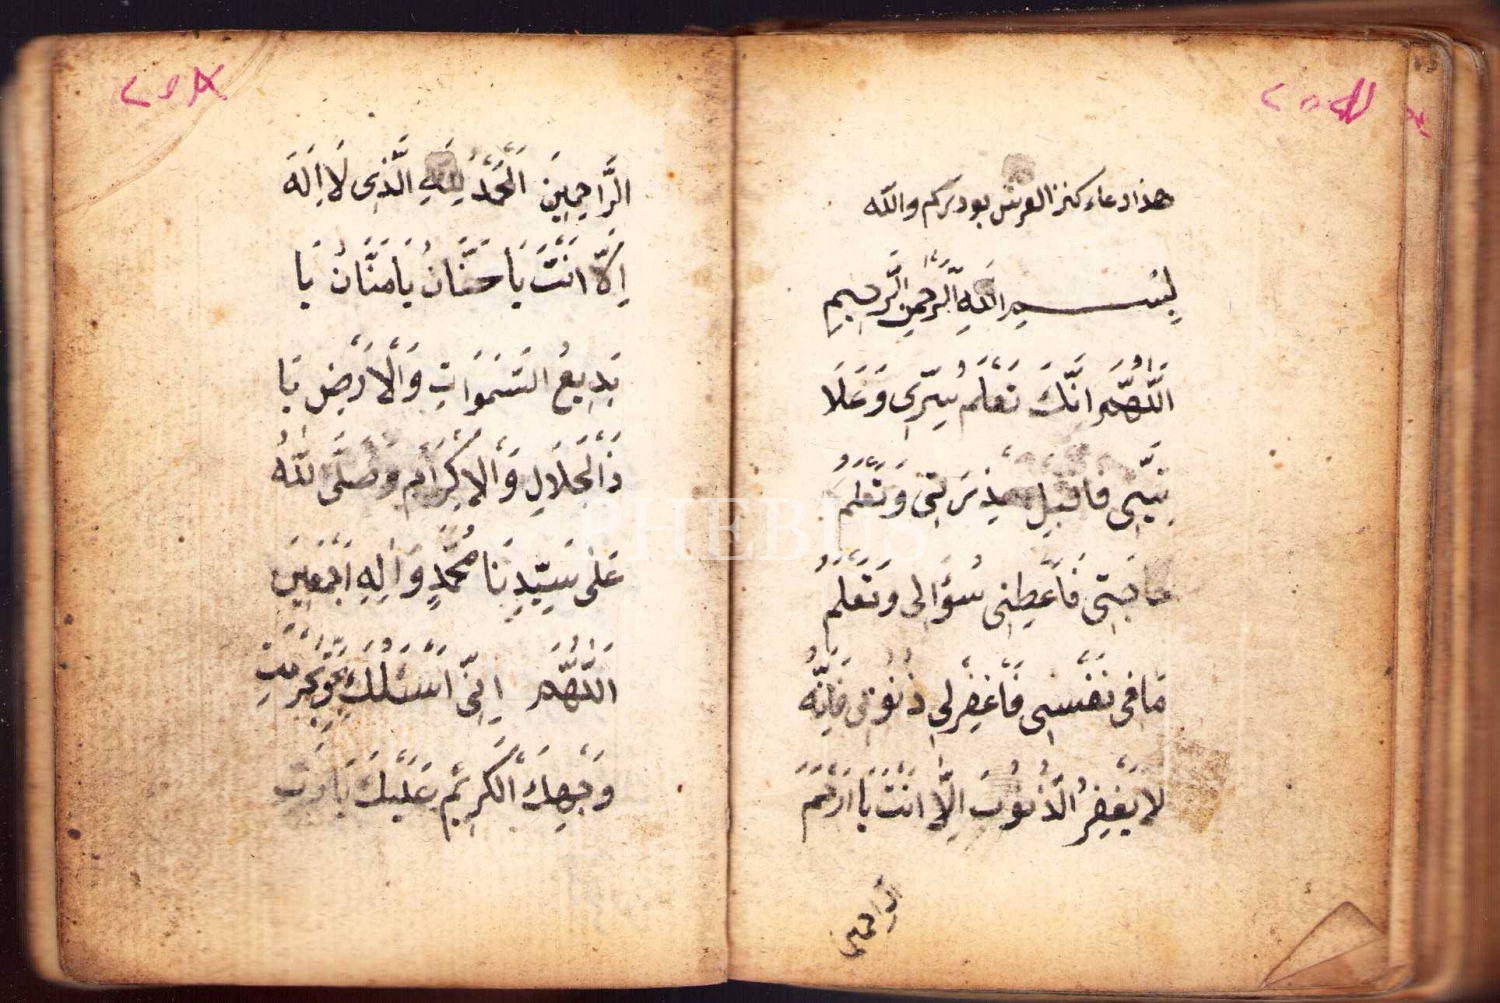 هذا دعاء كنز العرش بودركم والله
بِسْمِ اللهِ الرَّحْمنِ الرَّحِيمِ
اَللّٰهُمَّ اِنَّكَ تَعْلَمُ سِرّى وَعَلَا
نِيَتِى فاقبل معذِرَتِى وَتَعْلَمُ
حاجَتِى فَاَعْطِنِى سُؤَالِى وَتَعْلَمُ
مَا فِى نَفْسِى فَاغْفِرْلِى ذُنُوبِى فَاِنَّهُ
لَا يَغْفِرُ الذُّنُوبَ اِلَّا اَنْتَ يَا اَرْحَمَ
الراحمين
الرَّاحِمِينَ اَلْحَمْدُ لِلّٰهِ الَّذِى لَا اِلَهَ
اِلَّا اَنْتَ يَا حَنَّانُ يَا مَنَّانُ يَا
بَدِيعُ السَّمَوَاتِ وَالْاَرْضِ يَا
ذَالْجَلَالِ وَالْاِكْرَامِ وَصَلَّى اللهُ
عَلَى سَيِّدِنَا مُحَمَّدٍ وَاٰلِهِ اَجْمَعِينَ
اَللّٰهُمَّ اِنِّى اَسْئَلُكَ بِحُرْمَتِ
وَجْهِكَ الْكَرِيمِ عَلَيْكَ يَارَبِّ
PHEBUS